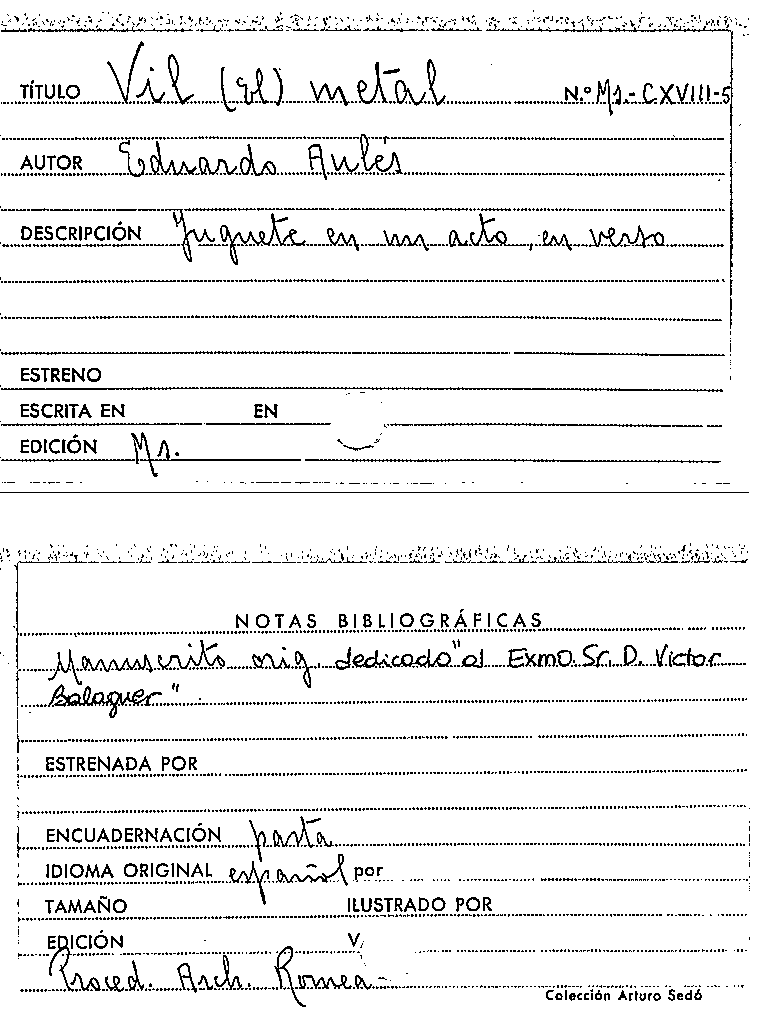 TÍTULO Vil (El) metal N.º Ms.- CXVIII-5
AUTOR Eduardo Aulés
DESCRIPCIÓN Juguete en un acto, en verso
ESTRENO
ESCRITA EN EN
EDICIÓN Ms.
NOTAS BIBLIOGRÁFICAS
Manuscrito orig. dedicado "al Exmo. Sr. D. Victor
Balaguer".
ESTRENADA POR
ENCUADERNACIÓN pasta
IDIOMA ORIGINAL español por
TAMAÑO ILUSTRADO POR
EDICIÓN V
Proced. Arch. Romea-
Colección Arturo Sedó